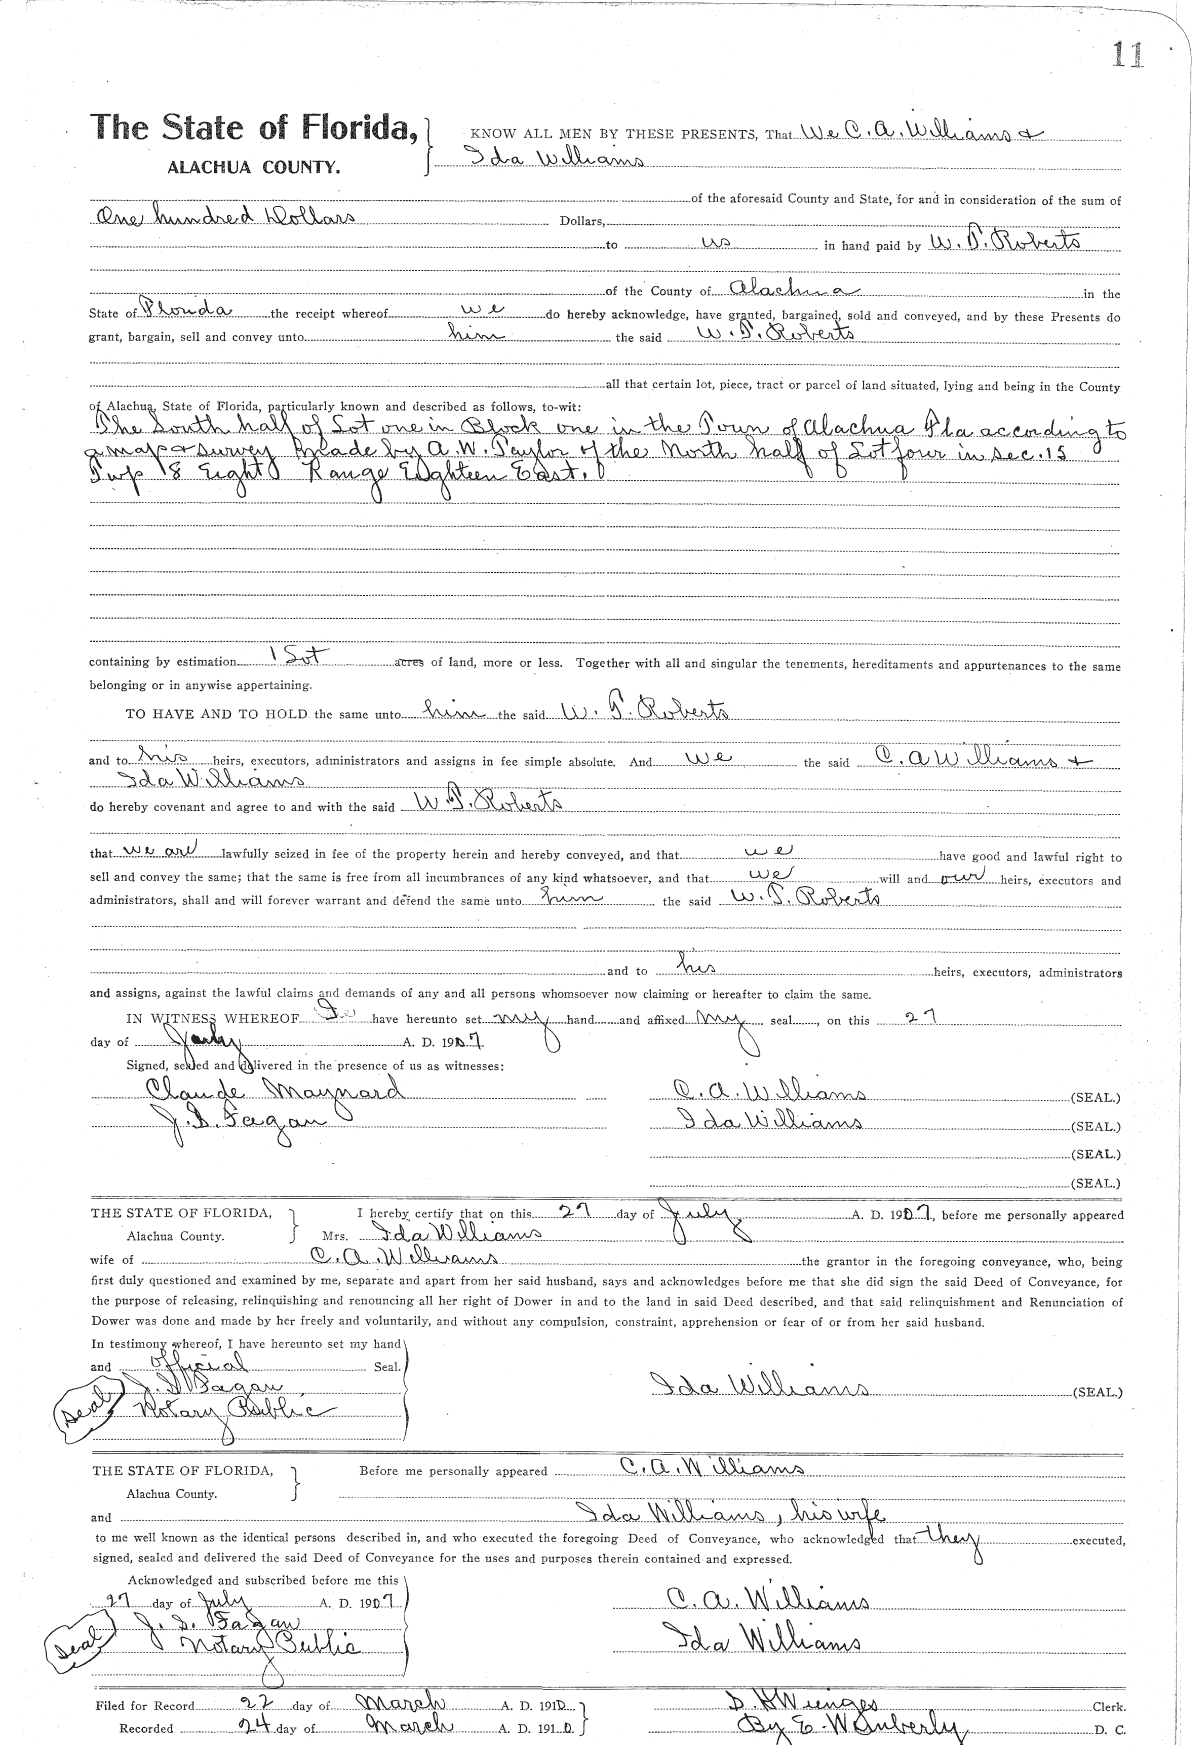 11
The State of Florida, KNOW ALL MEN BY THESE PRESENTS, That We C. A. Williams &
ALACHUA COUNTY. Ida Williams
of the aforesaid County and State, for and in consideration of the sum of
One hundred Dollars Dollars,
to us in hand paid by W. T. Roberts
of the County of Alachua in the
State of Florida the receipt whereof we do hereby acknowledge, have granted, bargained, sold and conveyed, and by these Presents do
grant, bargain, sell and convey unto him the said W. T. Roberts
all that certain lot, piece, tract or parcel of land situated, lying and being in the County
of Alachua, State of Florida, particularly known and described as follows, to-wit:
The South half of Lot one in Block one in the Town of Alachua Fla according to
a map & survey made by A. W. Taylor of the North half of Lot four in sec. 15
Twp 8 Eight Range Eighteen East.
containing by estimation 1 Lot acres of land, more or less. Together with all and singular the tenements, hereditaments and appurtenances to the same
belonging or in anywise appertaining.
TO HAVE AND TO HOLD the same unto him the said W. T. Roberts
and to his heirs, executors, administrators and assigns in fee simple absolute. And we the said C. A Williams &
Ida Williams
do hereby covenant and agree to and with the said W. T. Roberts
that we are lawfully seized in fee of the property herein and hereby conveyed, and that we have good and lawful right to
sell and convey the same; that the same is free from all incumbrances of any kind whatsoever, and that we will and our heirs, executors and
administrators, shall and will forever warrant and defend the same unto him the said W. T. Roberts
and to his heirs, executors, administrators
and assigns, against the lawful claims and demands of any and all persons whomsoever now claiming or hereafter to claim the same.
IN WITNESS WHEREOF I have hereunto set my hand and affixed my seal, on this 27
day of July A. D. 1907.
Signed, sealed and delivered in the presence of us as witnesses:
Claude Maynard C. A. Williams (SEAL.)
J. D. Fagan Ida Williams (SEAL.)
(SEAL.)
(SEAL.)
THE STATE OF FLORIDA, I hereby certify that on this 27 day of July A. D. 1907, before me personally appeared
Alachua County. Mrs. Ida Williams
wife of C. A. Williams the grantor in the foregoing conveyance, who, being
first duly questioned and examined by me, separate and apart from her said husband, says and acknowledges before me that she did sign the said Deed of Conveyance, for
the purpose of releasing, relinquishing and renouncing all her right of Dower in and to the land in said Deed described, and that said relinquishment and Renunciation of
Dower was done and made by her freely and voluntarily, and without any compulsion, constraint, apprehension or fear of or from her said husband.
In testimony whereof, I have hereunto set my hand
and official Seal.
J. D. Fagan Ida Williams (SEAL.)
Seal Notary Public
THE STATE OF FLORIDA, Before me personally appeared C. A. Williams
Alachua County.
and Ida Williams, his wife
to me well known as the identical persons described in, and who executed the foregoing Deed of Conveyance, who acknowledged that they executed,
signed, sealed and delivered the said Deed of Conveyance for the uses and purposes therein contained and expressed.
Acknowledged and subscribed before me this
27 day of July A. D. 1907 C. A. Williams
J. D. Fagan
Seal Notary Public Ida Williams
Filed for Record 22 day of March A. D. 1910 Clerk.
Recorded 24 day of March A. D. 1910 By E. Wimberly D. C.